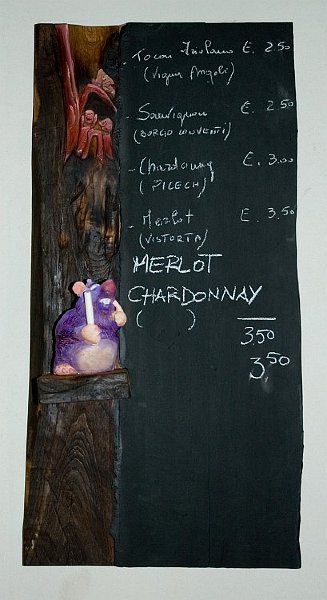 Tocai Friulano €. 2.50
(Vigna Angeli)
- Sauvignon €. 2.50
(BORGO CONVENTI)
- Chardonnay €. 3.00
(PICECH)
- Merlot €. 3.50
(VISTORTA)
MERLOT
CHARDONNAY
( )
3.50
3,50